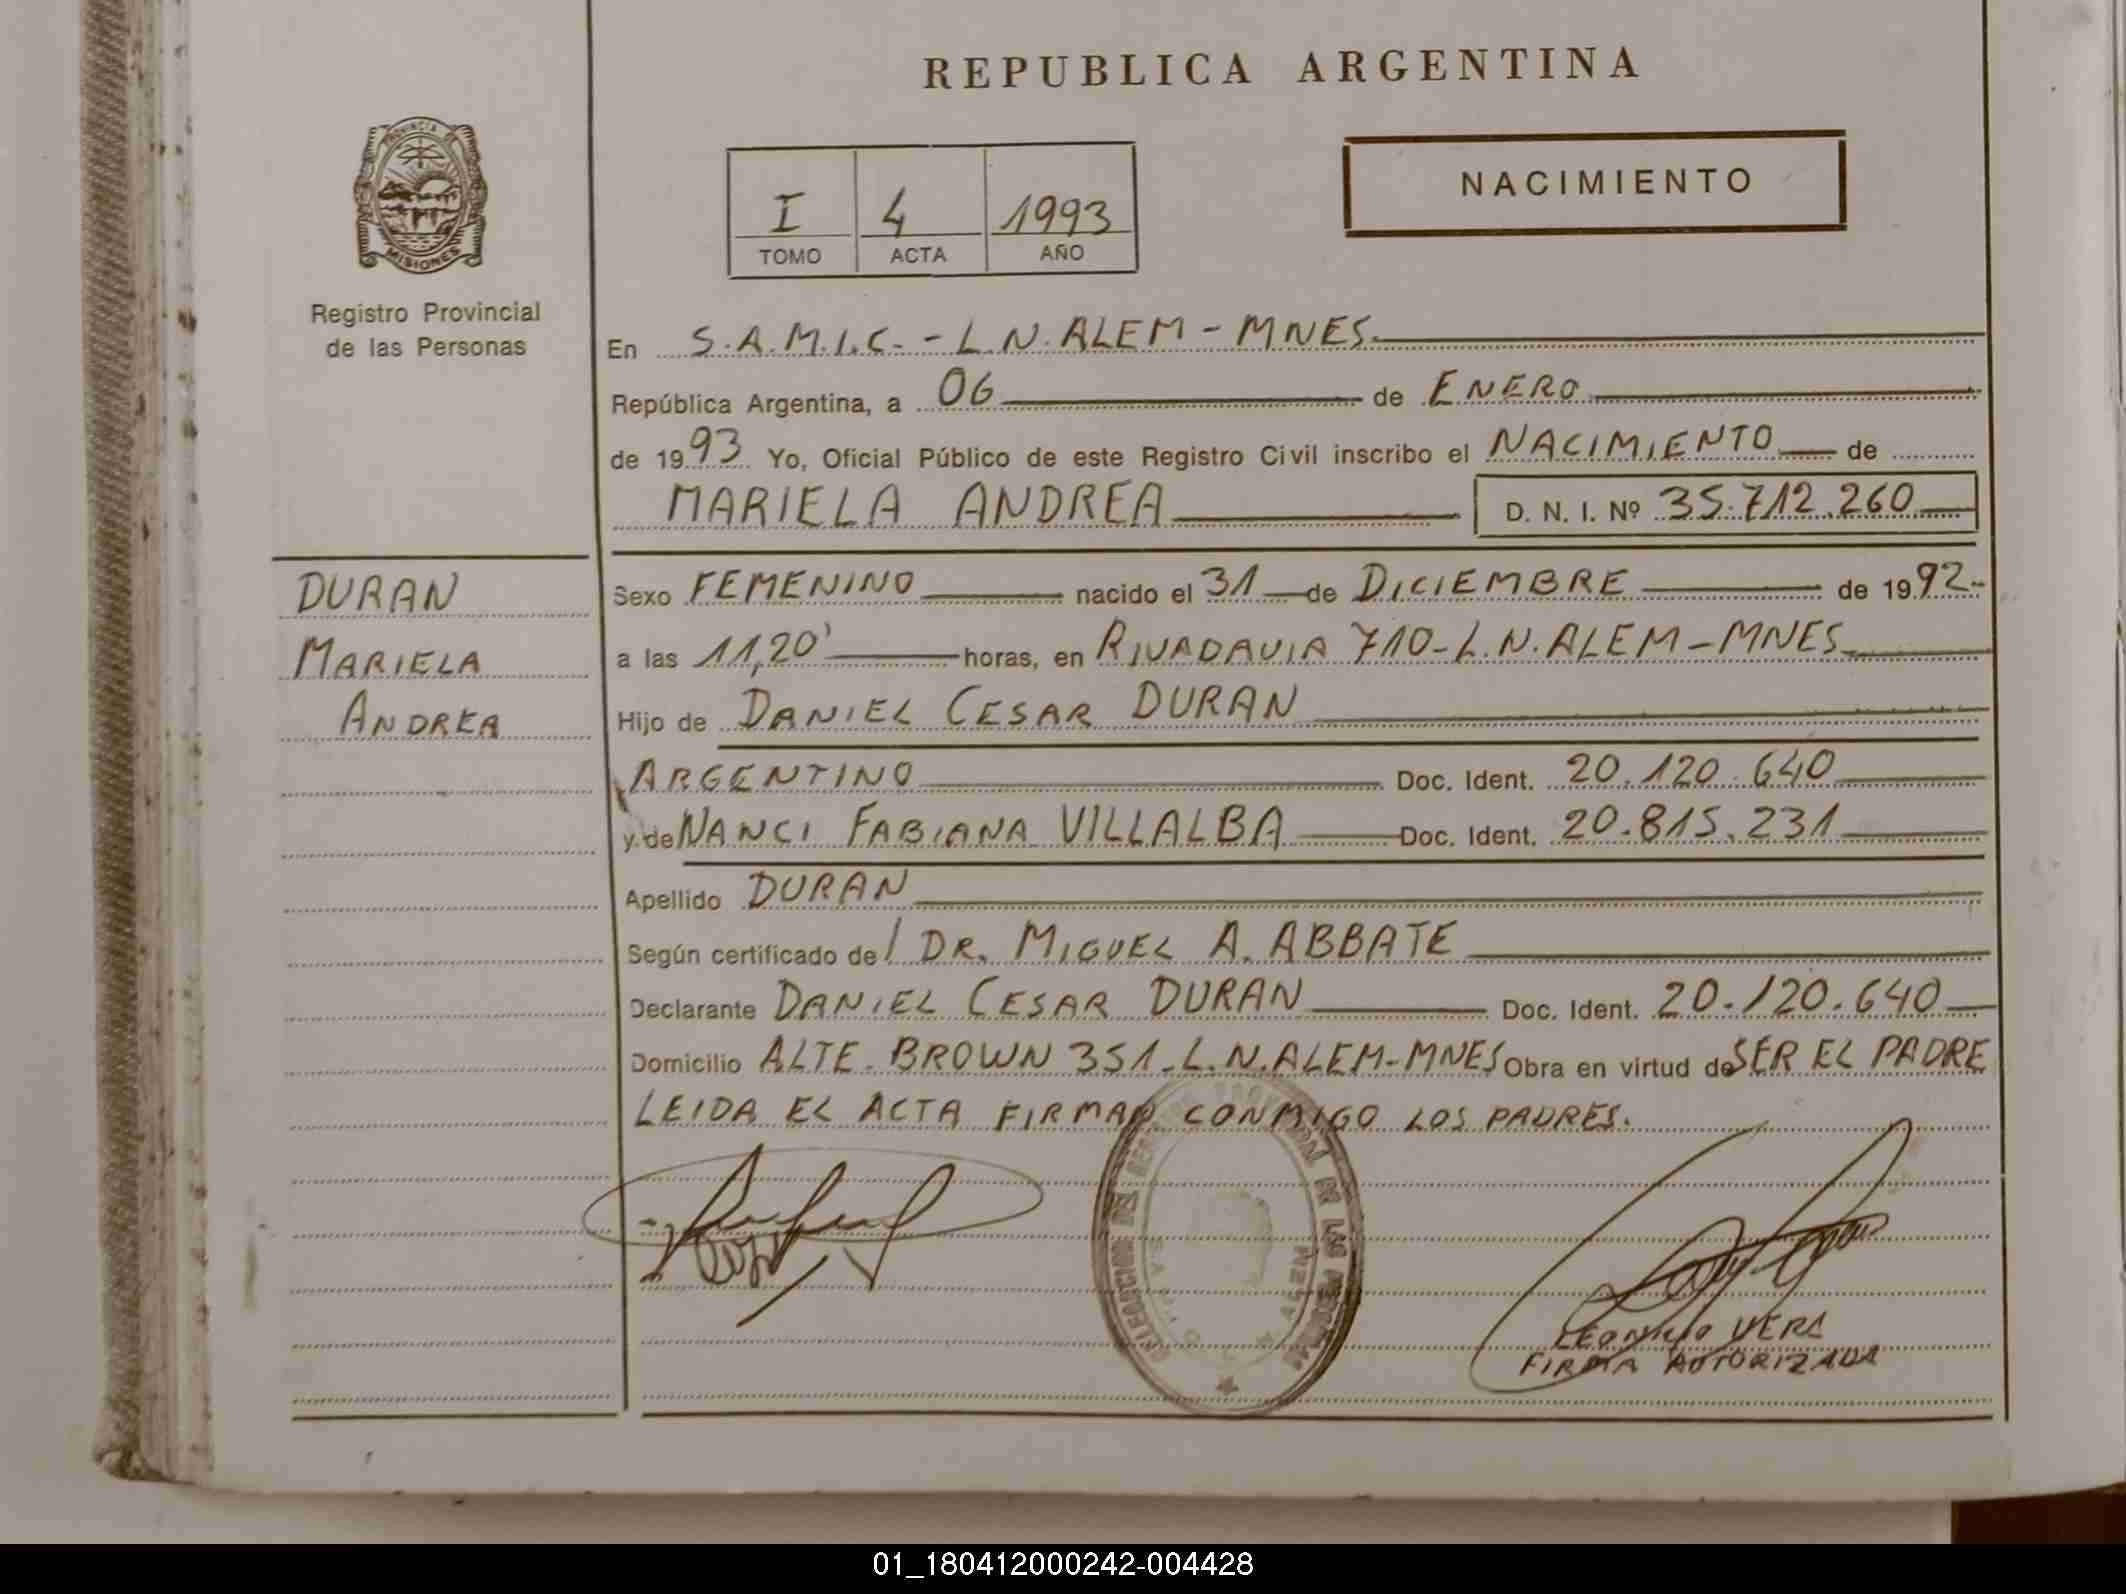 REPUBLICA ARGENTINA
PROVINCIA DE
MISIONES
Registro Provincial
de las Personas
I 4 1993
TOMO ACTA AÑO
NACIMIENTO
En S.A.M.I.C. - L.N. ALEM - MNES.
República Argentina, a 06 de ENERO
de 1993 Yo, Oficial Público de este Registro Civil inscribo el NACIMIENTO de
MARIELA ANDREA D. N. I. Nº 35.712.260
DURAN
MARIELA
ANDREA
Sexo FEMENINO nacido el 31 de DICIEMBRE de 1992-
a las 11,20' horas, en RIVADAVIA 710- L.N. ALEM - MNES
Hijo de DANIEL CESAR DURAN
ARGENTINO Doc. Ident. 20.120.640
y de NANCI FABIANA VILLALBA Doc. Ident. 20.815.231
Apellido DURAN
Según certificado de/ DR. MIGUEL A. ABBATE
Declarante DANIEL CESAR DURAN Doc. Ident. 20.120.640
Domicilio ALTE. BROWN 351-L.N.ALEM-MNES Obra en virtud de SER EL PADRE
LEIDA EL ACTA FIRMAN CONMIGO LOS PADRES.
DE LAS PERSONAS
ALEM
VERA
FIRMA AUTORIZADA
01_180412000242-004428